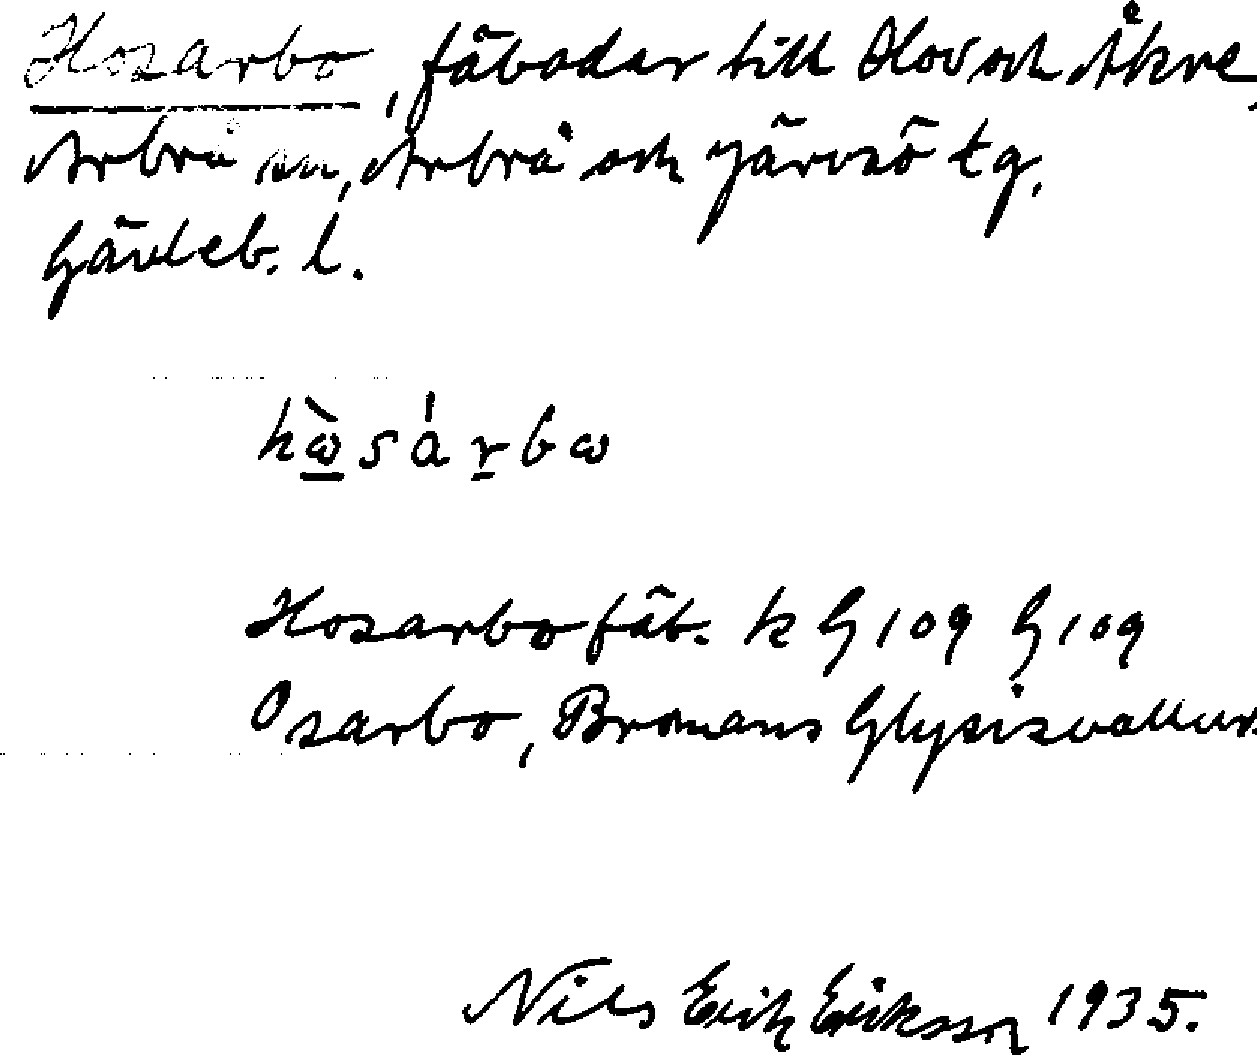 Hosarbo, fäbodar till Hov och Åkre,
Arbrå sn, Arbrå och Järvsö tg,
Gävleb. l.
hὼ̲sárbω
Hosarbo fäb. k G 109 G 109
Osarbo, Bromans Glysisvallur
Nils Erik Eriksson 1935.